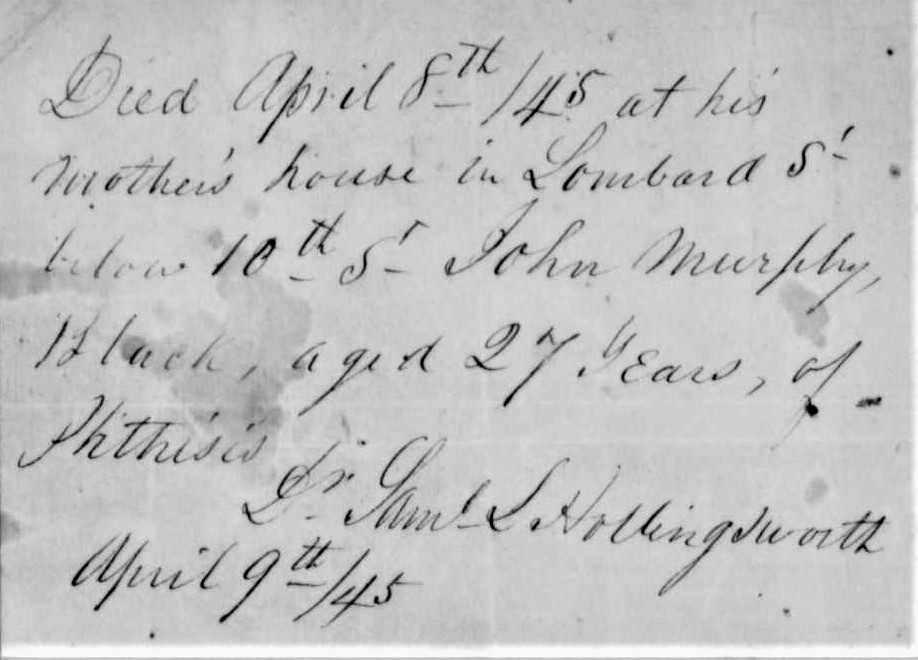 Died April 8th /45 at his
mother's house in Lombard St
below 10th St John Murphy,
Black, aged 27 Years, of
Phthisis
Dr. Saml L Hollingsworth
April 9th /45